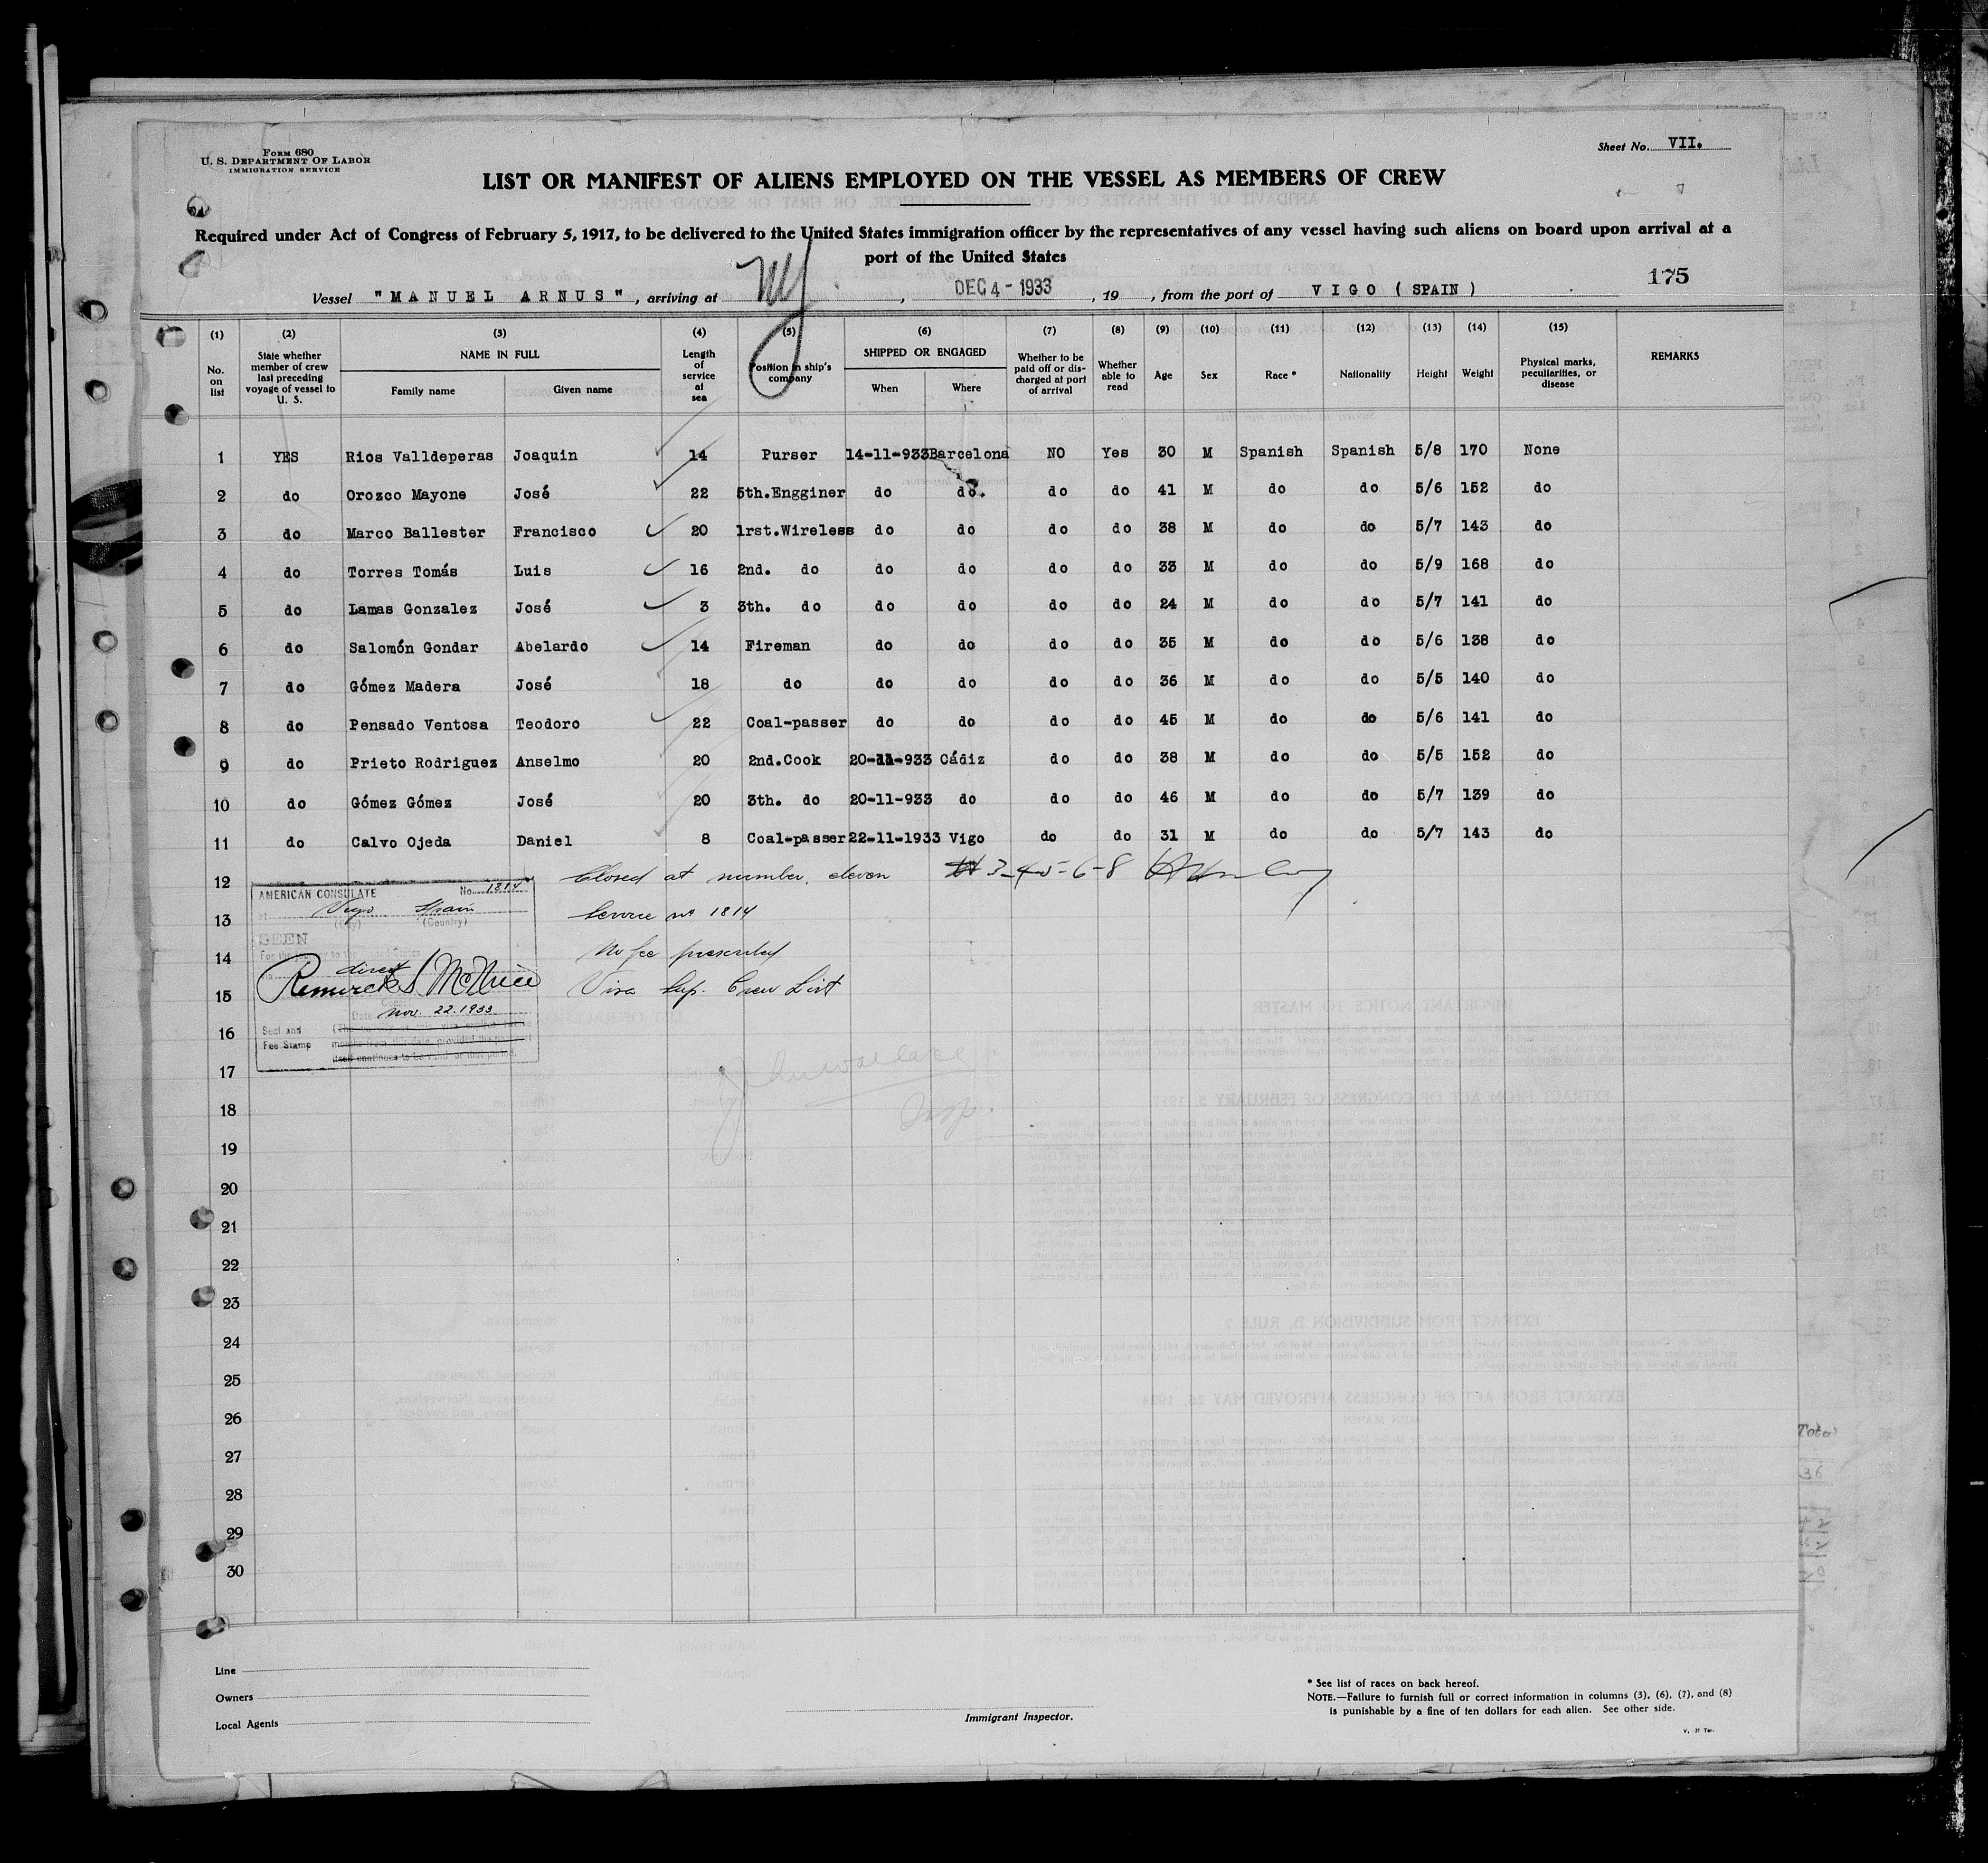 Form 680
U. S. DEPARTMENT OF LABOR
IMMIGRATION SERVICE
Sheet No. VII.
LIST OR MANIFEST OF ALIENS EMPLOYED ON THE VESSEL AS MEMBERS OF CREW
Required under Act of Congress of February 5, 1917, to be delivered to the United States immigration officer by the representatives of any vessel having such aliens on board upon arrival at a
port of the United States
175
Vessel "MANUEL ARNUS", arriving at NY, DEC 4 - 1933, 19 , from the port of VIGO (SPAIN)
(1) (2) (3) (4) (5) (6) (7) (8) (9) (10) (11) (12) (13) (14) (15)
No. on list State whether member of crew last preceding voyage of vessel to U. S. NAME IN FULL Family name Given name Length of service at sea Position in ship's company SHIPPED OR ENGAGED When Where Whether to be paid off or discharged at port of arrival Whether able to read Age Sex Race * Nationality Height Weight Physical marks, peculiarities, or disease REMARKS
1 YES Rios Valldeperas Joaquin 14 Purser 14-11-933 Barcelona NO Yes 30 M Spanish Spanish 5/8 170 None
2 do Orozco Mayone José 22 5th.Engginer do do. do do 41 M do do 5/6 152 do
3 do Marco Ballester Francisco 20 1rst.Wireless do do do do 38 M do do 5/7 143 do
4 do Torres Tomás Luis 16 2nd. do do do do do 33 M do do 5/9 168 do
5 do Lamas Gonzalez José 3 3th. do do do do do 24 M do do 5/7 141 do
6 do Salomón Gondar Abelardo 14 Fireman do do do do 35 M do do 5/6 138 do
7 do Gómez Madera José 18 do do do do do 36 M do do 5/5 140 do
8 do Pensado Ventosa Teodoro 22 Coal-passer do do do do 45 M do do 5/6 141 do
9 do Prieto Rodriguez Anselmo 20 2nd.Cook 20-11-933 Cádiz do do 38 M do do 5/5 152 do
10 do Gómez Gómez José 20 3th. do 20-11-933 do do do 46 M do do 5/7 139 do
11 do Calvo Ojeda Daniel 8 Coal-passer 22-11-1933 Vigo do do 31 M do do 5/7 143 do
12 Closed at number eleven 3-4-5-6-8
AMERICAN CONSULATE No. 1814
13 at Vigo Spain
(City) (Country)
Service no 1814
SEEN
14 No fee prescribed
direct
15 Visa Sup. Crew List
Date Nov. 22. 1933
16
Seal and
Fee Stamp
17
John Wallace
18 Insp.
19
20
21
22
23
24
25
26
27
28
29
30
Total
36
Line
Owners
Local Agents
Immigrant Inspector.
* See list of races on back hereof.
NOTE.—Failure to furnish full or correct information in columns (3), (6), (7), and (8)
is punishable by a fine of ten dollars for each alien. See other side.